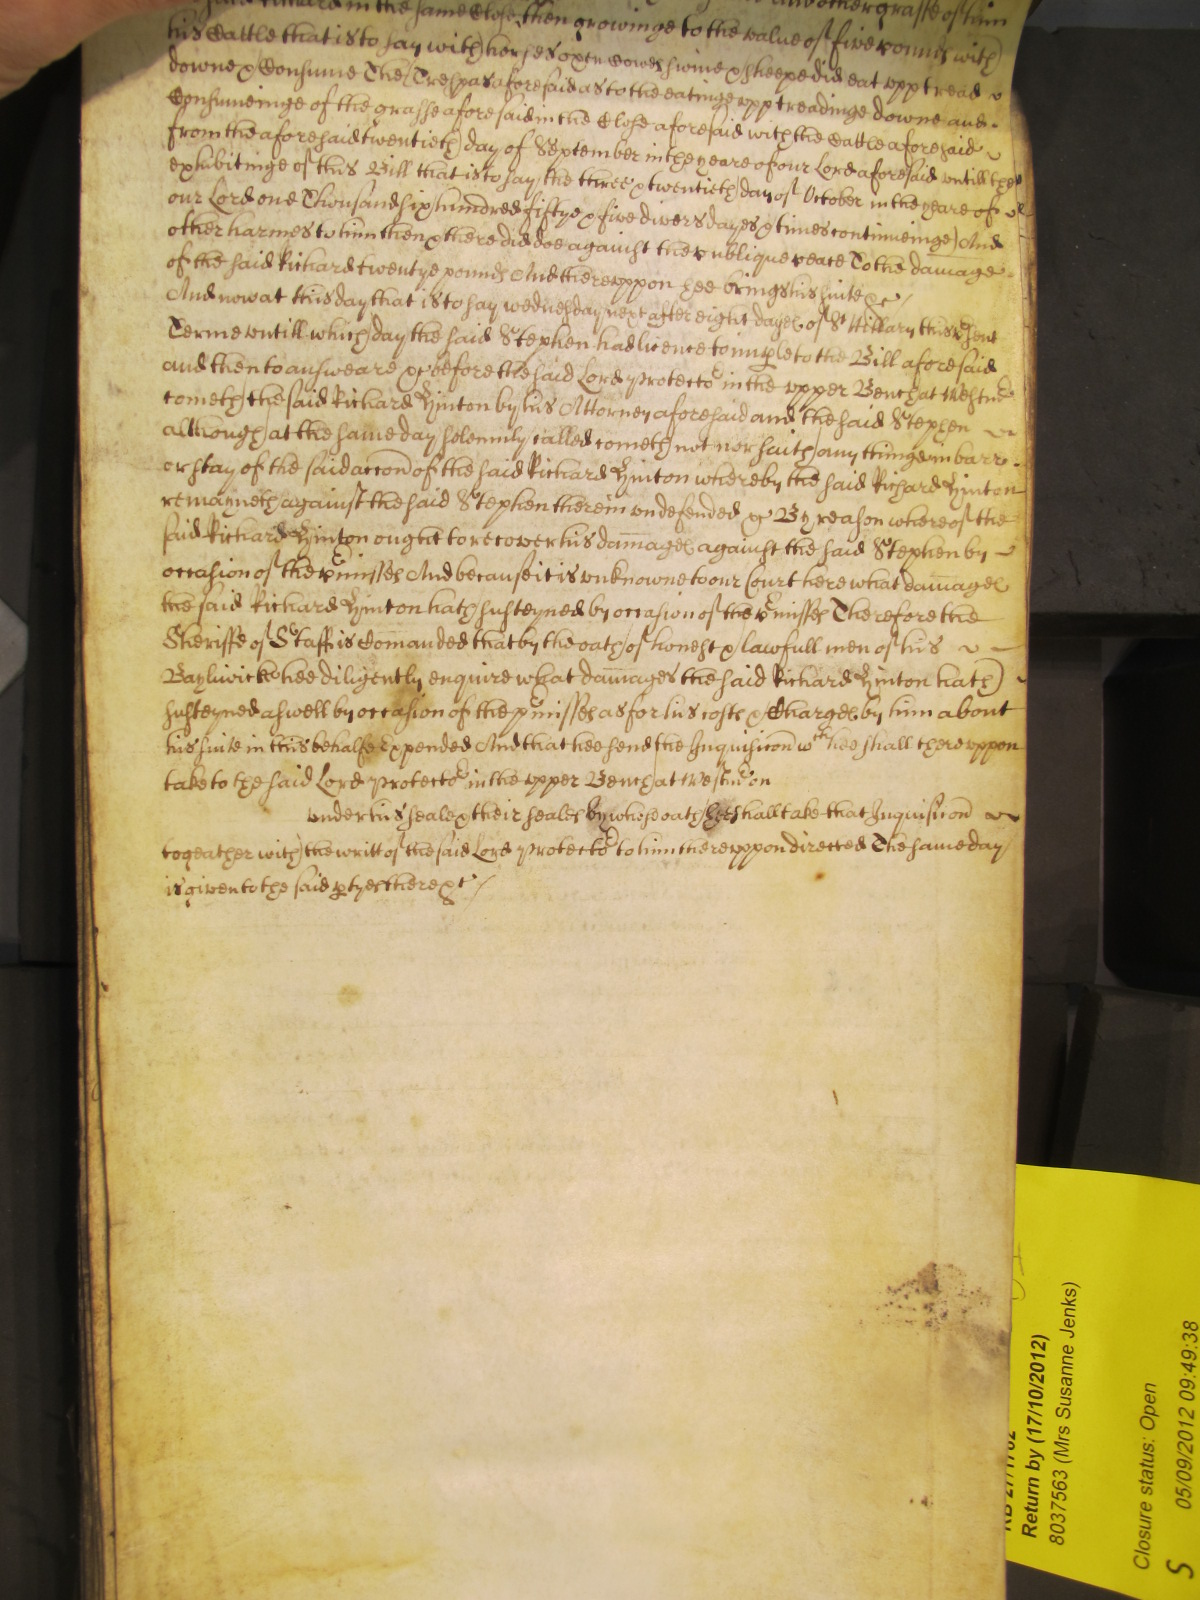 said Richard in the same Close then growinge to the value of five pounds with
his Cattle that is to say with horses oxen Cowes swine & sheepe did eat upp tread
downe & Consume The Trespas aforesaid as to the eatinge upp treadinge downe and
Consumeinge of the grasse aforesaid in the Close aforesaid with the Cattle aforesaid
from the aforesaid twentieth day of September in the yeare of our Lord aforesaid untill the
exhibitinge of this Bill that is to say the three & twentieth day of October in the yeare of
our Lord one Thousand six hundred fiftye & five divers dayes & times continueinge And
other harmes to him then & there did doe against the publique peace To the damage
of the said Richard twentye pounds And thereuppon hee brings his suite &c
And now at this day that is to say wednesday next after eight dayes of St Hillary this same
Terme untill which day the said Stephen had licence to imparle to the Bill aforesaid
and then to answeare &c before the said Lord Protector in the upper Bench at Westmr
cometh the said Richard Hinton by his Attorney aforesaid and the said Stephen
although at the same day solemnly called cometh not nor saith any thinge in barre
or stay of the said accon of the said Richard Hinton whereby the said Richard Hinton
remayneth against the said Stephen therein undefended &c By reason whereof the
said Richard Hinton ought to recover his damages against the said Stephen by
occasion of the pmisses And because it is unknowne to our Court here what damages
the said Richard Hinton hath susteyned by occasion of the pmisses Therefore the
Sheriffe of Staff is Comanded that by the oath of honest & lawfull men of his
Bayliwicke hee diligently enquire what damages the said Richard Hinton hath
susteyned aswell by occasion of the pmisses as for his costs & Charges by him about
his suite in this behalfe Expended And that hee send the Inquisicon wch hee shall thereuppon
take to the said Lord Protector in the upper Bench at Westmr on
under his seale & their seales by whose oath hee shall take that Inquisicon
togeather with the writt of the said Lord Protector to him thereuppon directed The same day
is given to the said ptyes there &c
Return by (17/10/2012)
8037563 (Mrs Susanne Jenks)
Closure status: Open
S 05/09/2012 09:49:38